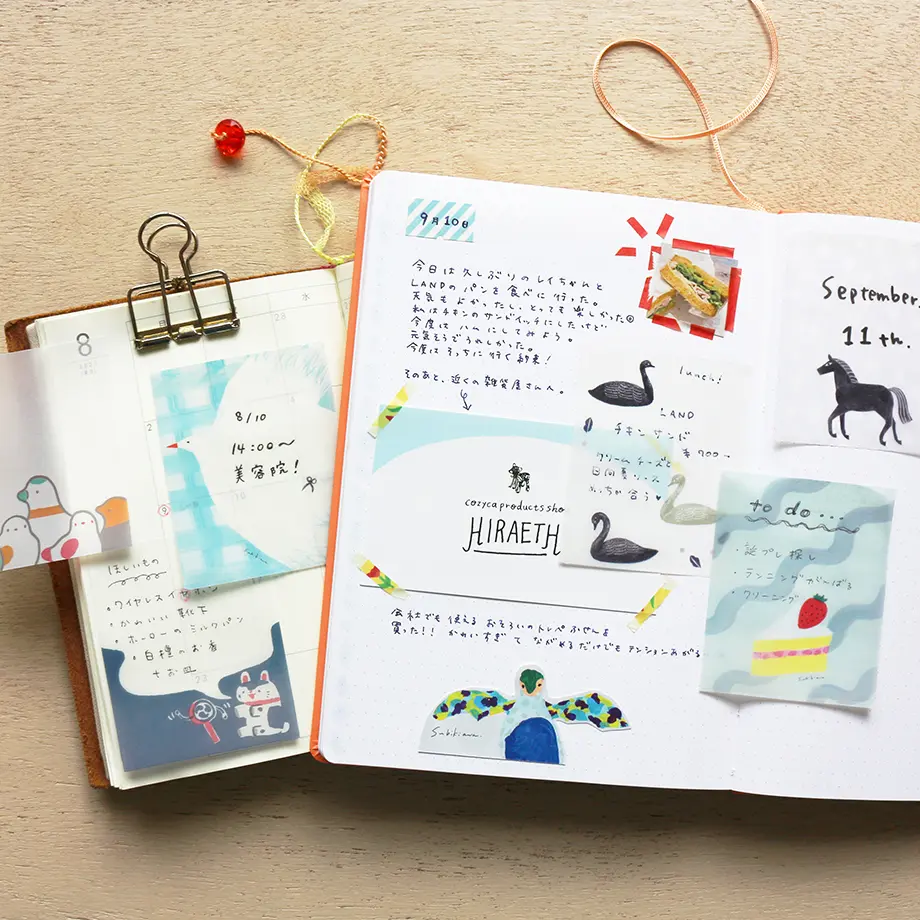 8
水
28
8/10
14:00〜
美容院!
10
ほしいもの
・ワイヤレスイヤホン
・かわいい靴下
・ホーローのミルクパン
・白檀のお香
23
9月10日
今日は久しぶりのレイちゃんと
LANDのパンを食べに行った。
天気もよかったし、とっても楽しかった
私はチキンのサンドイッチにしたけど
今度はハムにしてみよう。
元気そうでうれしかった。
今度はそっちに行く約束!
そのあと、近くの雑貨屋さんへ。
lunch!
LAND
チキンサンド
¥700-
クリームチーズと
めっちゃ合う♥
cozyca products sho
HIRAETH
会社でも使えるおそろいのトレペふせんを
買った!! かわいすぎてながめるだけでもテンションあがる
Subikiawa.
September,
11th.
to do...
・誕プレ探し
・ランニングがんばる
・クリーニング